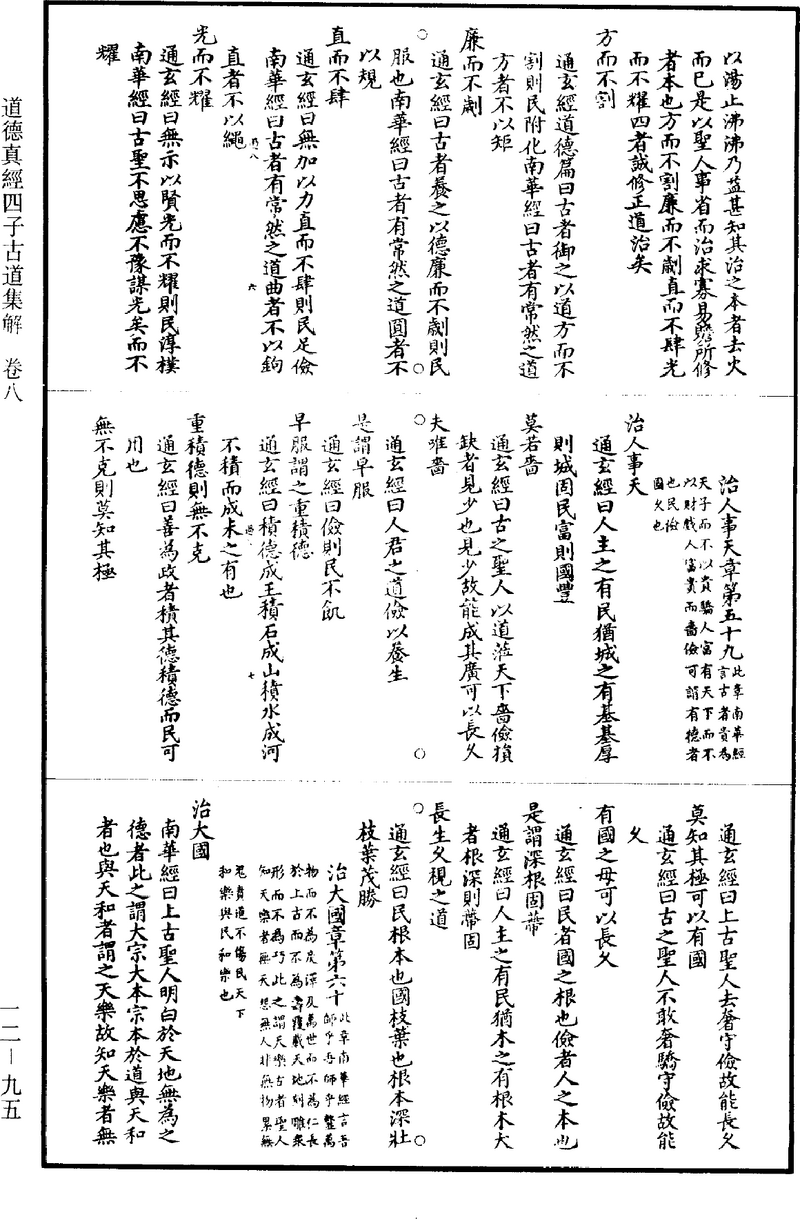 以湯止沸沸乃益甚知其治之本者去火
而已是以聖人事省而治求寡易贍所修
者本也方而不割廉而不劌直而不肆光
而不耀四者誠修正道治矣
方而不割
通玄經道德篇曰古者御之以道方而不
割則民附化南華經曰古者有常然之道
方者不以矩
廉而不劌
通玄經曰古者養之以德廉而不劌則民
服也南華經曰古者有常然之道圓者不
以規
直而不肆
通玄經曰無加以力直而不肆則民足儉
南華經曰古者有常然之道曲者不以鉤
直者不以繩
光而不耀
通玄經曰無示以賢光而不耀則民淳樸
南華經曰古聖不思慮不豫謀光矣而不
耀
治人事天章第五十九此章南華經
言古者貴為
天子而不以貴驕人富有天下而不
以財戲人富貴而嗇儉可謂有德者
也民儉
國久也
治人事天
通玄經曰人主之有民猶城之有基基厚
則城固民富則國豐
莫若嗇
通玄經曰古之聖人以道蒞天下嗇儉損
缺者見少也見少故能成其廣可以長久
夫唯嗇
通玄經曰人君之道儉以養生
是謂早服
通玄經曰儉則民不飢
早服謂之重積德
通玄經曰積德成王積石成山積水成河
不積而成未之有也
重積德則無不克
通玄經曰善為政者積其德積德而民可
用也
無不克則莫知其極
通玄經曰上古聖人去奢守儉故能長久
莫知其極可以有國
通玄經曰古之聖人不敢奢驕守儉故能
久
有國之母可以長久
通玄經曰民者國之根也儉者人之本也
是謂深根固蔕
通玄經曰人主之有民猶木之有根木大
者根深則蔕固
長生久視之道
通玄經曰民根本也國枝葉也根本深壯
枝葉茂勝
治大國章第六十此章南華經言吾
師乎吾師乎韲萬
物而不為戾澤及萬世而不為仁長
於上古而不為壽覆載天地刻雕衆
形而不為巧此之謂天樂古者聖人
知天樂者無天怨無人非無物累無
鬼責道不傷民天下
和樂與民和樂也
治大國
南華經曰上古聖人明白於天地無為之
德者此之謂大宗大本宗本於道與天和
者也與天和者謂之天樂故知天樂者無
道德真經四子古道集解 卷八
一二—九五